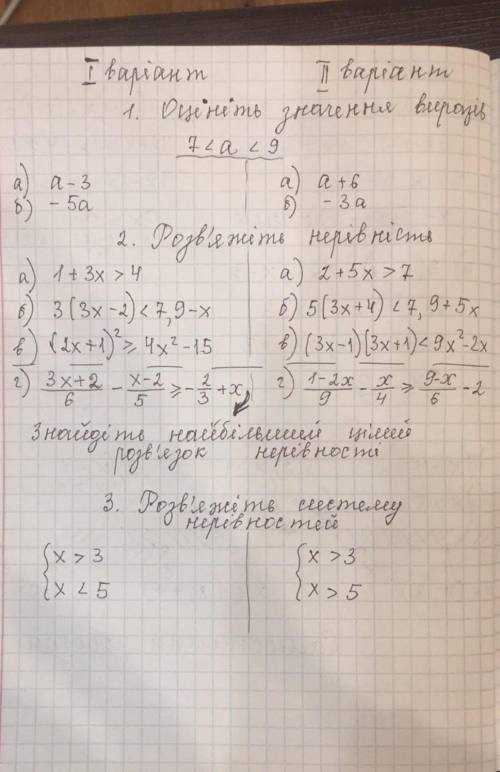 I варіант II варіант
1. Оцініть значення виразів
7 < a < 9
а) a - 3 а) a + 6
б) - 5a б) - 3a
2. Розв'яжіть нерівність
а) 1 + 3x > 4 а) 2 + 5x > 7
б) 3(3x - 2) < 7,9 - x б) 5(3x + 4) < 7,9 + 5x
в) (2x + 1)² ≥ 4x² - 15 в) (3x - 1)(3x + 1) < 9x² - 2x
г) (3x + 2)/6 - (x - 2)/5 ≥ - 2/3 + x г) (1 - 2x)/9 - x/4 ≥ (9 - x)/6 - 2
Знайдіть найбільший цілий
розв'язок нерівності
3. Розв'яжіть систему
нерівностей
{ x > 3 { x > 3
{ x < 5 { x > 5